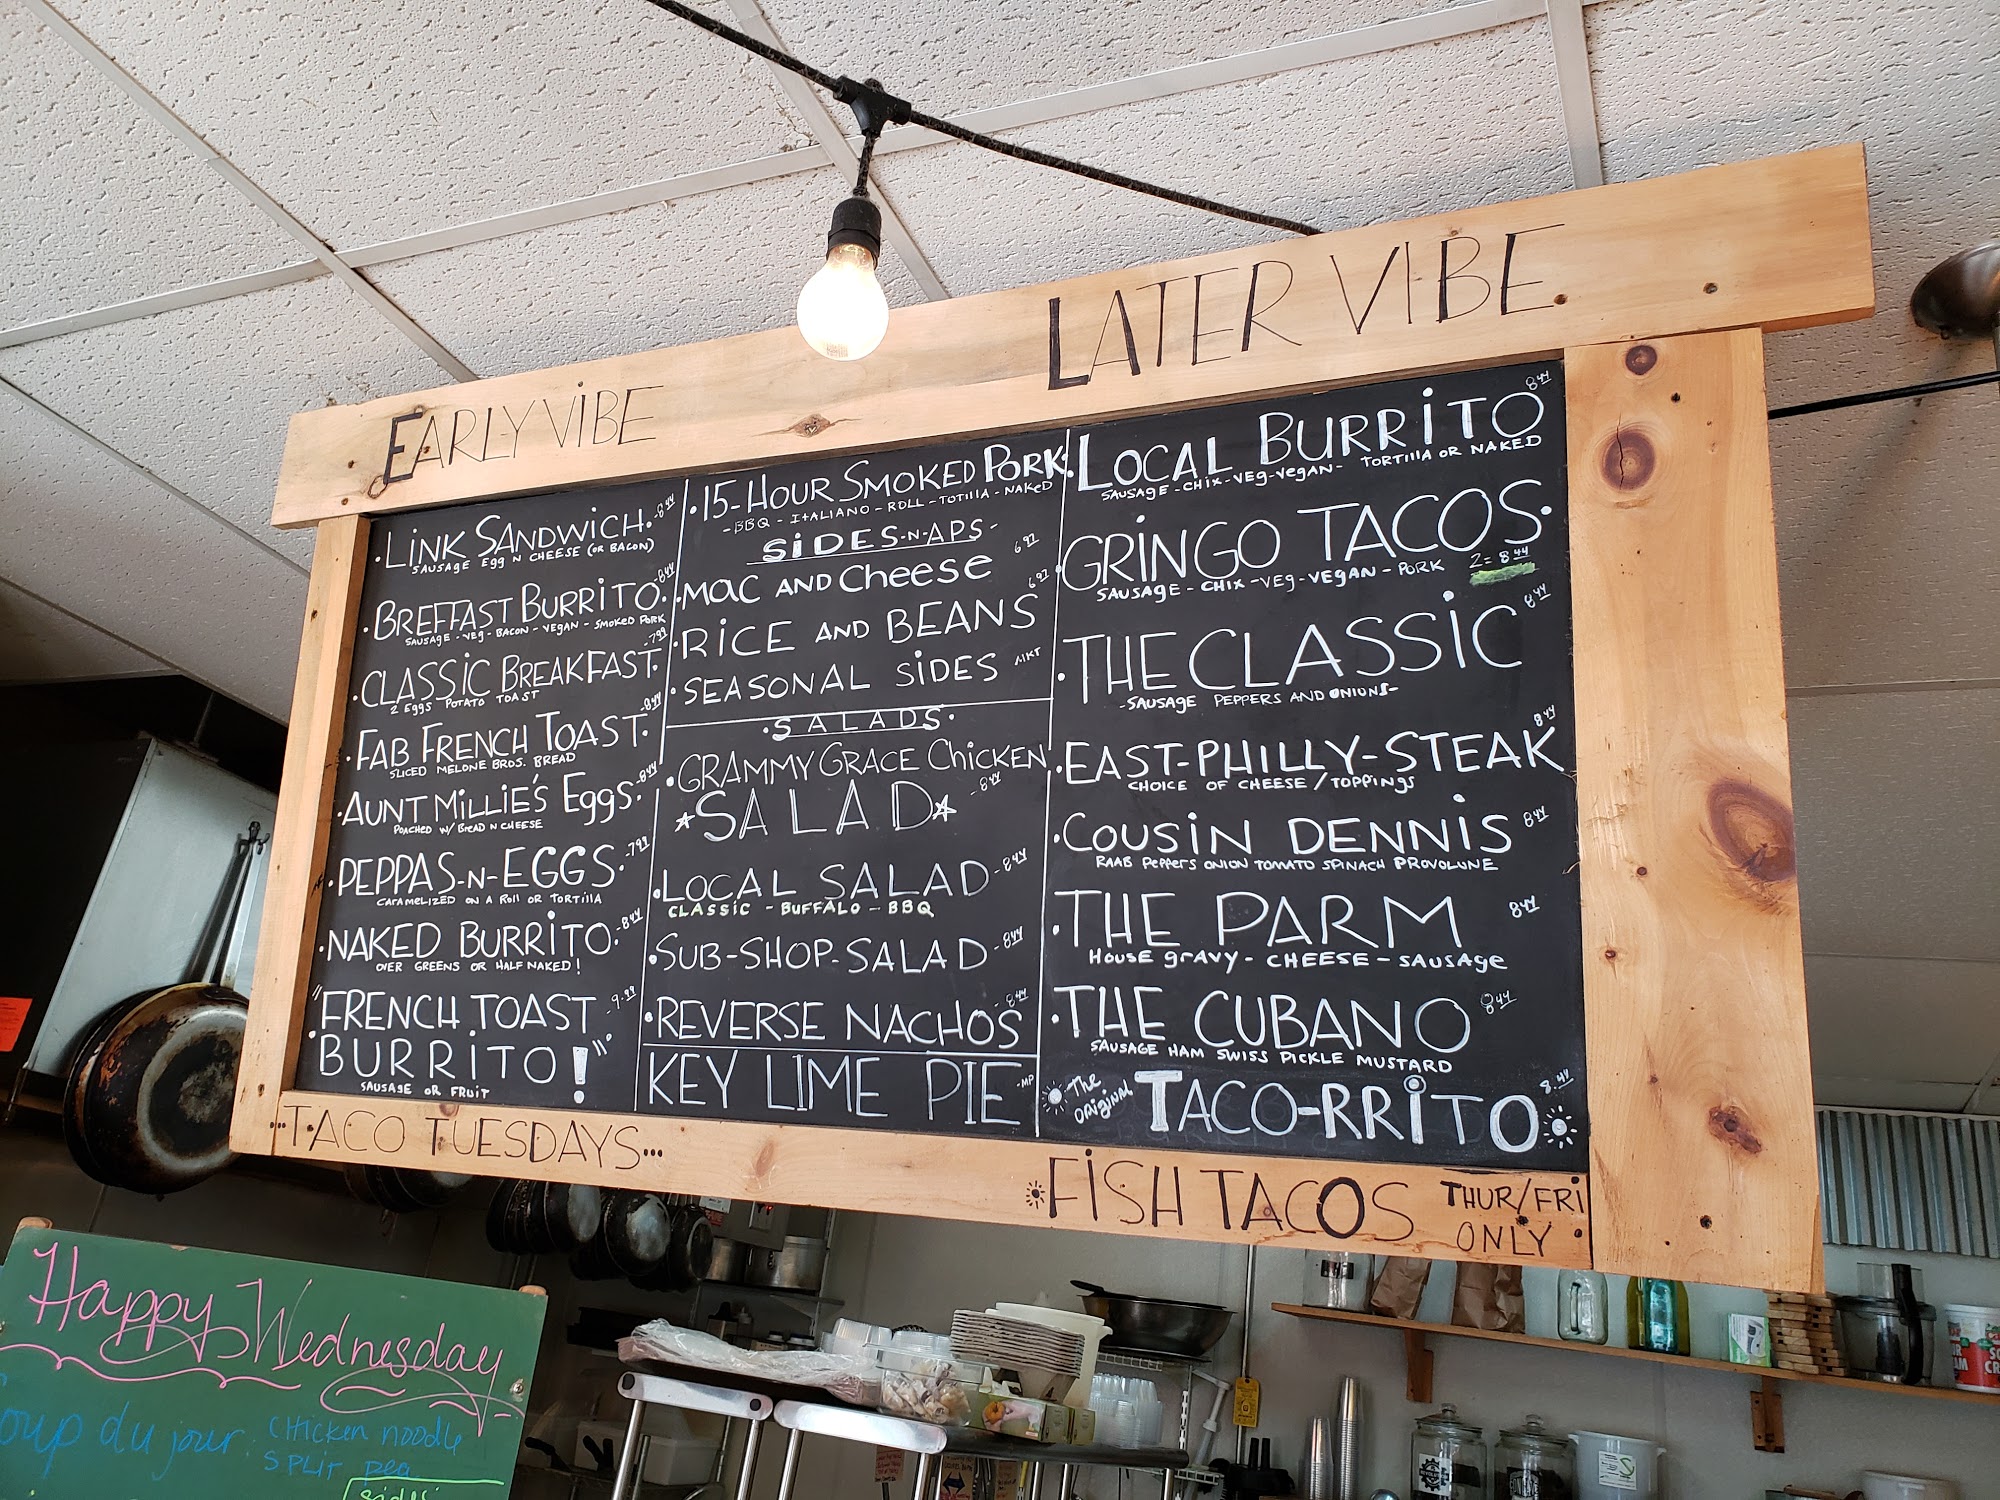 EARLY VIBE
LATER VIBE
• LINK SANDWICH. -8.44
SAUSAGE EGG N CHEESE (OR BACON)
• BREFFAST BURRITO. -8.44
SAUSAGE - VEG - BACON - VEGAN - SMOKED PORK
• CLASSIC BREAKFAST. -7.99
2 EGGS POTATO TOAST
• FAB FRENCH TOAST. -8.44
SLICED MELONE BROS. BREAD
• AUNT MILLIE'S EGGS. -8.44
POACHED W/ BREAD N CHEESE
• PEPPAS-N-EGGS. -7.99
CARAMELIZED ON A ROLL OR TORTILLA
• NAKED BURRITO. -8.44
OVER GREENS OR HALF NAKED!
• "FRENCH TOAST -9.99
BURRITO!"
SAUSAGE OR FRUIT
• 15-HOUR SMOKED PORK
- BBQ - ITALIANO - ROLL - TOTILLA - NAKED
SIDES-N-APS-
• MAC AND CHEESE 6.97
• RICE AND BEANS 6.97
• SEASONAL SIDES MKT
• SALADS •
• GRAMMY GRACE CHICKEN
SALAD -8.44
• LOCAL SALAD -8.44
CLASSIC - BUFFALO - BBQ
• SUB-SHOP-SALAD -8.44
• REVERSE NACHOS -8.44
KEY LIME PIE -MP
• LOCAL BURRITO 8.44
SAUSAGE - CHIX - VEG - VEGAN - TORTILLA OR NAKED
• GRINGO TACOS •
SAUSAGE - CHIX - VEG - VEGAN - PORK 2= 8.44
• THE CLASSIC 8.44
- SAUSAGE PEPPERS AND ONIONS -
• EAST-PHILLY-STEAK 8.44
CHOICE OF CHEESE / TOPPINGS
• COUSIN DENNIS 8.44
RAAB PEPPERS ONION TOMATO SPINACH PROVOLONE
• THE PARM 8.44
HOUSE GRAVY - CHEESE - SAUSAGE
• THE CUBANO 8.44
SAUSAGE HAM SWISS PICKLE MUSTARD
THE ORIGINAL TACO-RRITO 8.44
...TACO TUESDAYS...
FISH TACOS THUR/FRI
ONLY
Happy Wednesday
Soup du jour: CHICKEN noodle
SPLIT pea
sides: